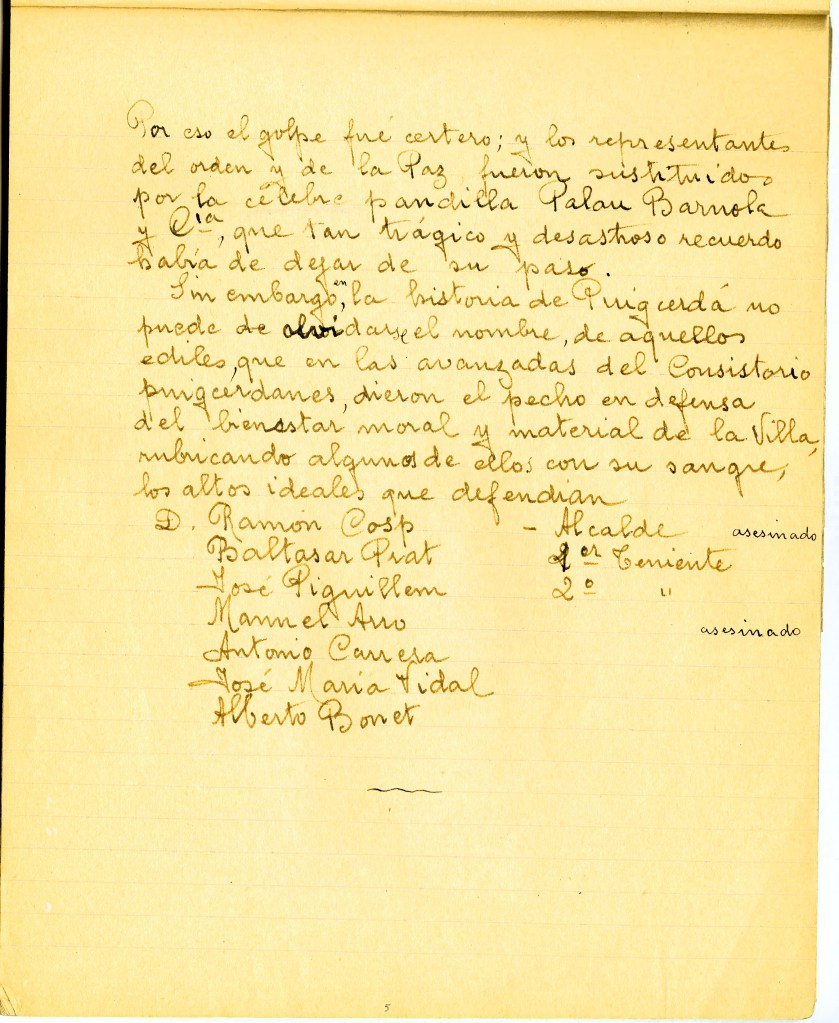 Por eso el golpe fué certero; y los representantes
del orden y de la Paz fueron sustituidos
por la célebre pandilla Palau Barnola
y Cia, que tan trágico y desastroso recuerdo
había de dejar de su paso.
Sin embargo, en la historia de Puigcerdá no
puede de olvidarse el nombre, de aquellos
ediles, que en las avanzadas del Consistorio
puigcerdanes, dieron el pecho en defensa
del bienestar moral y material de la Villa,
rubricando algunos de ellos con su sangre,
los altos ideales que defendian
D. Ramón Cosp - Alcalde asesinado
Baltasar Piat 1er Teniente
José Piguillem 2º "
Manuel Arro asesinado
Antonio Carrera
José María Vidal
Alberto Bonet
5